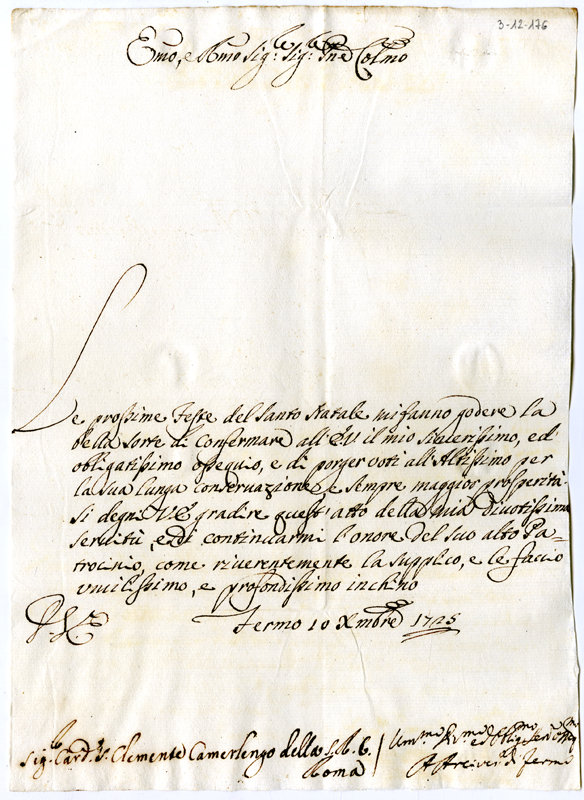 3-12-176
Emo, e Rmo Sig.re Sig.re Pne Colmo
Le prossime Feste del Santo Natale mi fanno godere la
bella sorte di confermare all'EV il mio sincerissimo, ed
obligatissimo ossequio, e di porger voti all'Altissimo per
la sua lunga conservazione, e sempre maggior prosperità.
Si degni V.E. gradire quest'atto della mia divotissima
servitù, e di continuarmi l'onore del suo alto Pa-
trocinio, come riverentemente la supplico, e le faccio
umilissimo, e profondissimo inchino
Fermo 10 Xmbre 1725
Sig.re Card. S. Clemente Camerlengo della S. R. C.
Roma
Ummo Devmo ed Obligmo
A Arcives. di Fermo